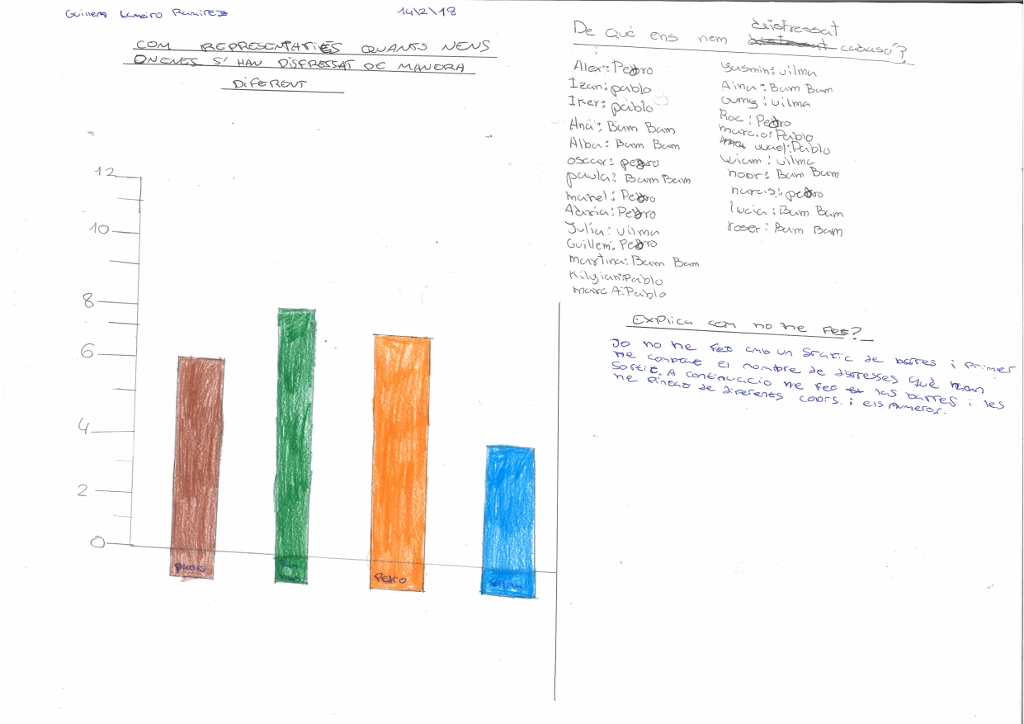 Guillem Lameiro Ramirez
14\2\18
COM REPRESENTARIES QUANTS NENS
O NENES S'HAN DISFRESSAT DE MANERA
DIFERENT
12
10
8
6
4
2
0
Pablo
Bam
Pedro
Vilma
De què ens hem disfressat
cadascú?
Alex: Pedro
Izan: pablo
Iker: pablo
Ana: Bam Bam
Alba: Bam Bam
oscar: pedro
paula: Bam Bam
manel: Pedro
Adrià: Pedro
Julia: vilma
Guillem: Pedro
martina: Bam Bam
Kilyian: Pablo
marc A: Pablo
yasmin: vilma
Aina: Bam Bam
oumy: vilma
Roc: Pedro
marcio: Pablo
wael: Pablo
wiam: vilma
noor: Bam Bam
narcis: pedro
lucia: Bam Bam
roser: Bam Bam
Explica com ho he fet?
Jo ho he fet amb un grafic de barres i primer
he comptat el nombre de disfresses què han
sortit. A continuació he fet las barres i les
he pintat de diferents colors. i els numeros.